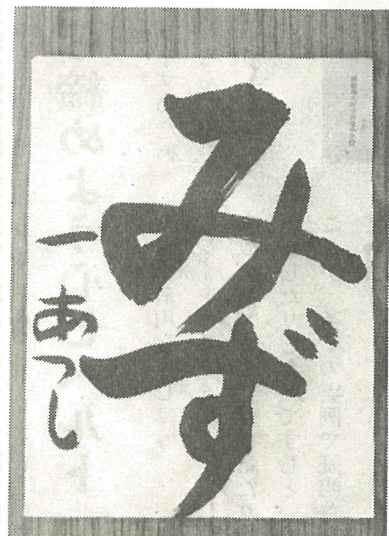 みず
一 あつし